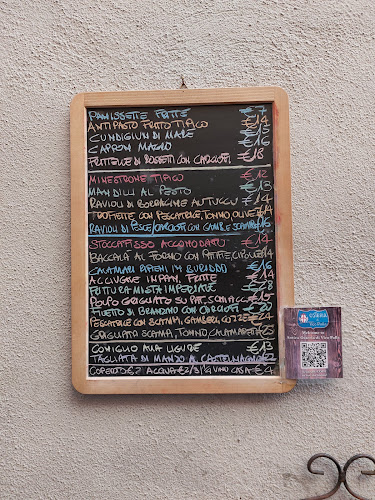 PANISSETTE FRITTE €7
ANTIPASTO FRITTO TIPICO €14
CUNDIGIUN DI MARE €15
CAPPON MAGRO €16
FRITTELLE DI ROSSETTI CON CARCIOFI €18
MINESTRONE TIPICO €12
MANDILLI AL PESTO €13
RAVIOLI DI BORRAGINE AU TUCCU €14
TROFIETTE CON PESCATRICE, TONNO, OLIVE €14
RAVIOLI DI PESCE/CARCIOFI CON GAMB E SCAMPI €16
STOCCAFISSO ACCOMODATU
BACCALÀ AL FORNO CON PATATE, CIPOLLE €14
CALAMARI RIPIENI IN BURIDDA €16
ACCIUGHE IN PAN, FRITTE €14
FRITTURA MISTA IMPERIALE
POLPO GRIGLIATO SU PAT,
FILETTO DI BRANZINO CON CARCIOFI €20
PESCATRICE CON SCAMPI, GAMBERI, COZZE
GRIGLIATA SCAMPI, TONNO, CALAMARETTI €25
CONIGLIO ALLA LIGURE €13
TAGLIATA DI MANZO AL CASTELMAGNO €22
COPERTO €2 ACQUA €2/3 ¼ VINO CASA €4
OSTERIA